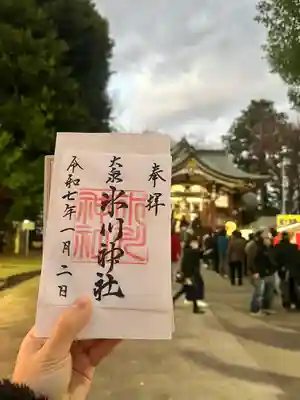 奉拝
大泉
氷川神社
令和七年一月二日